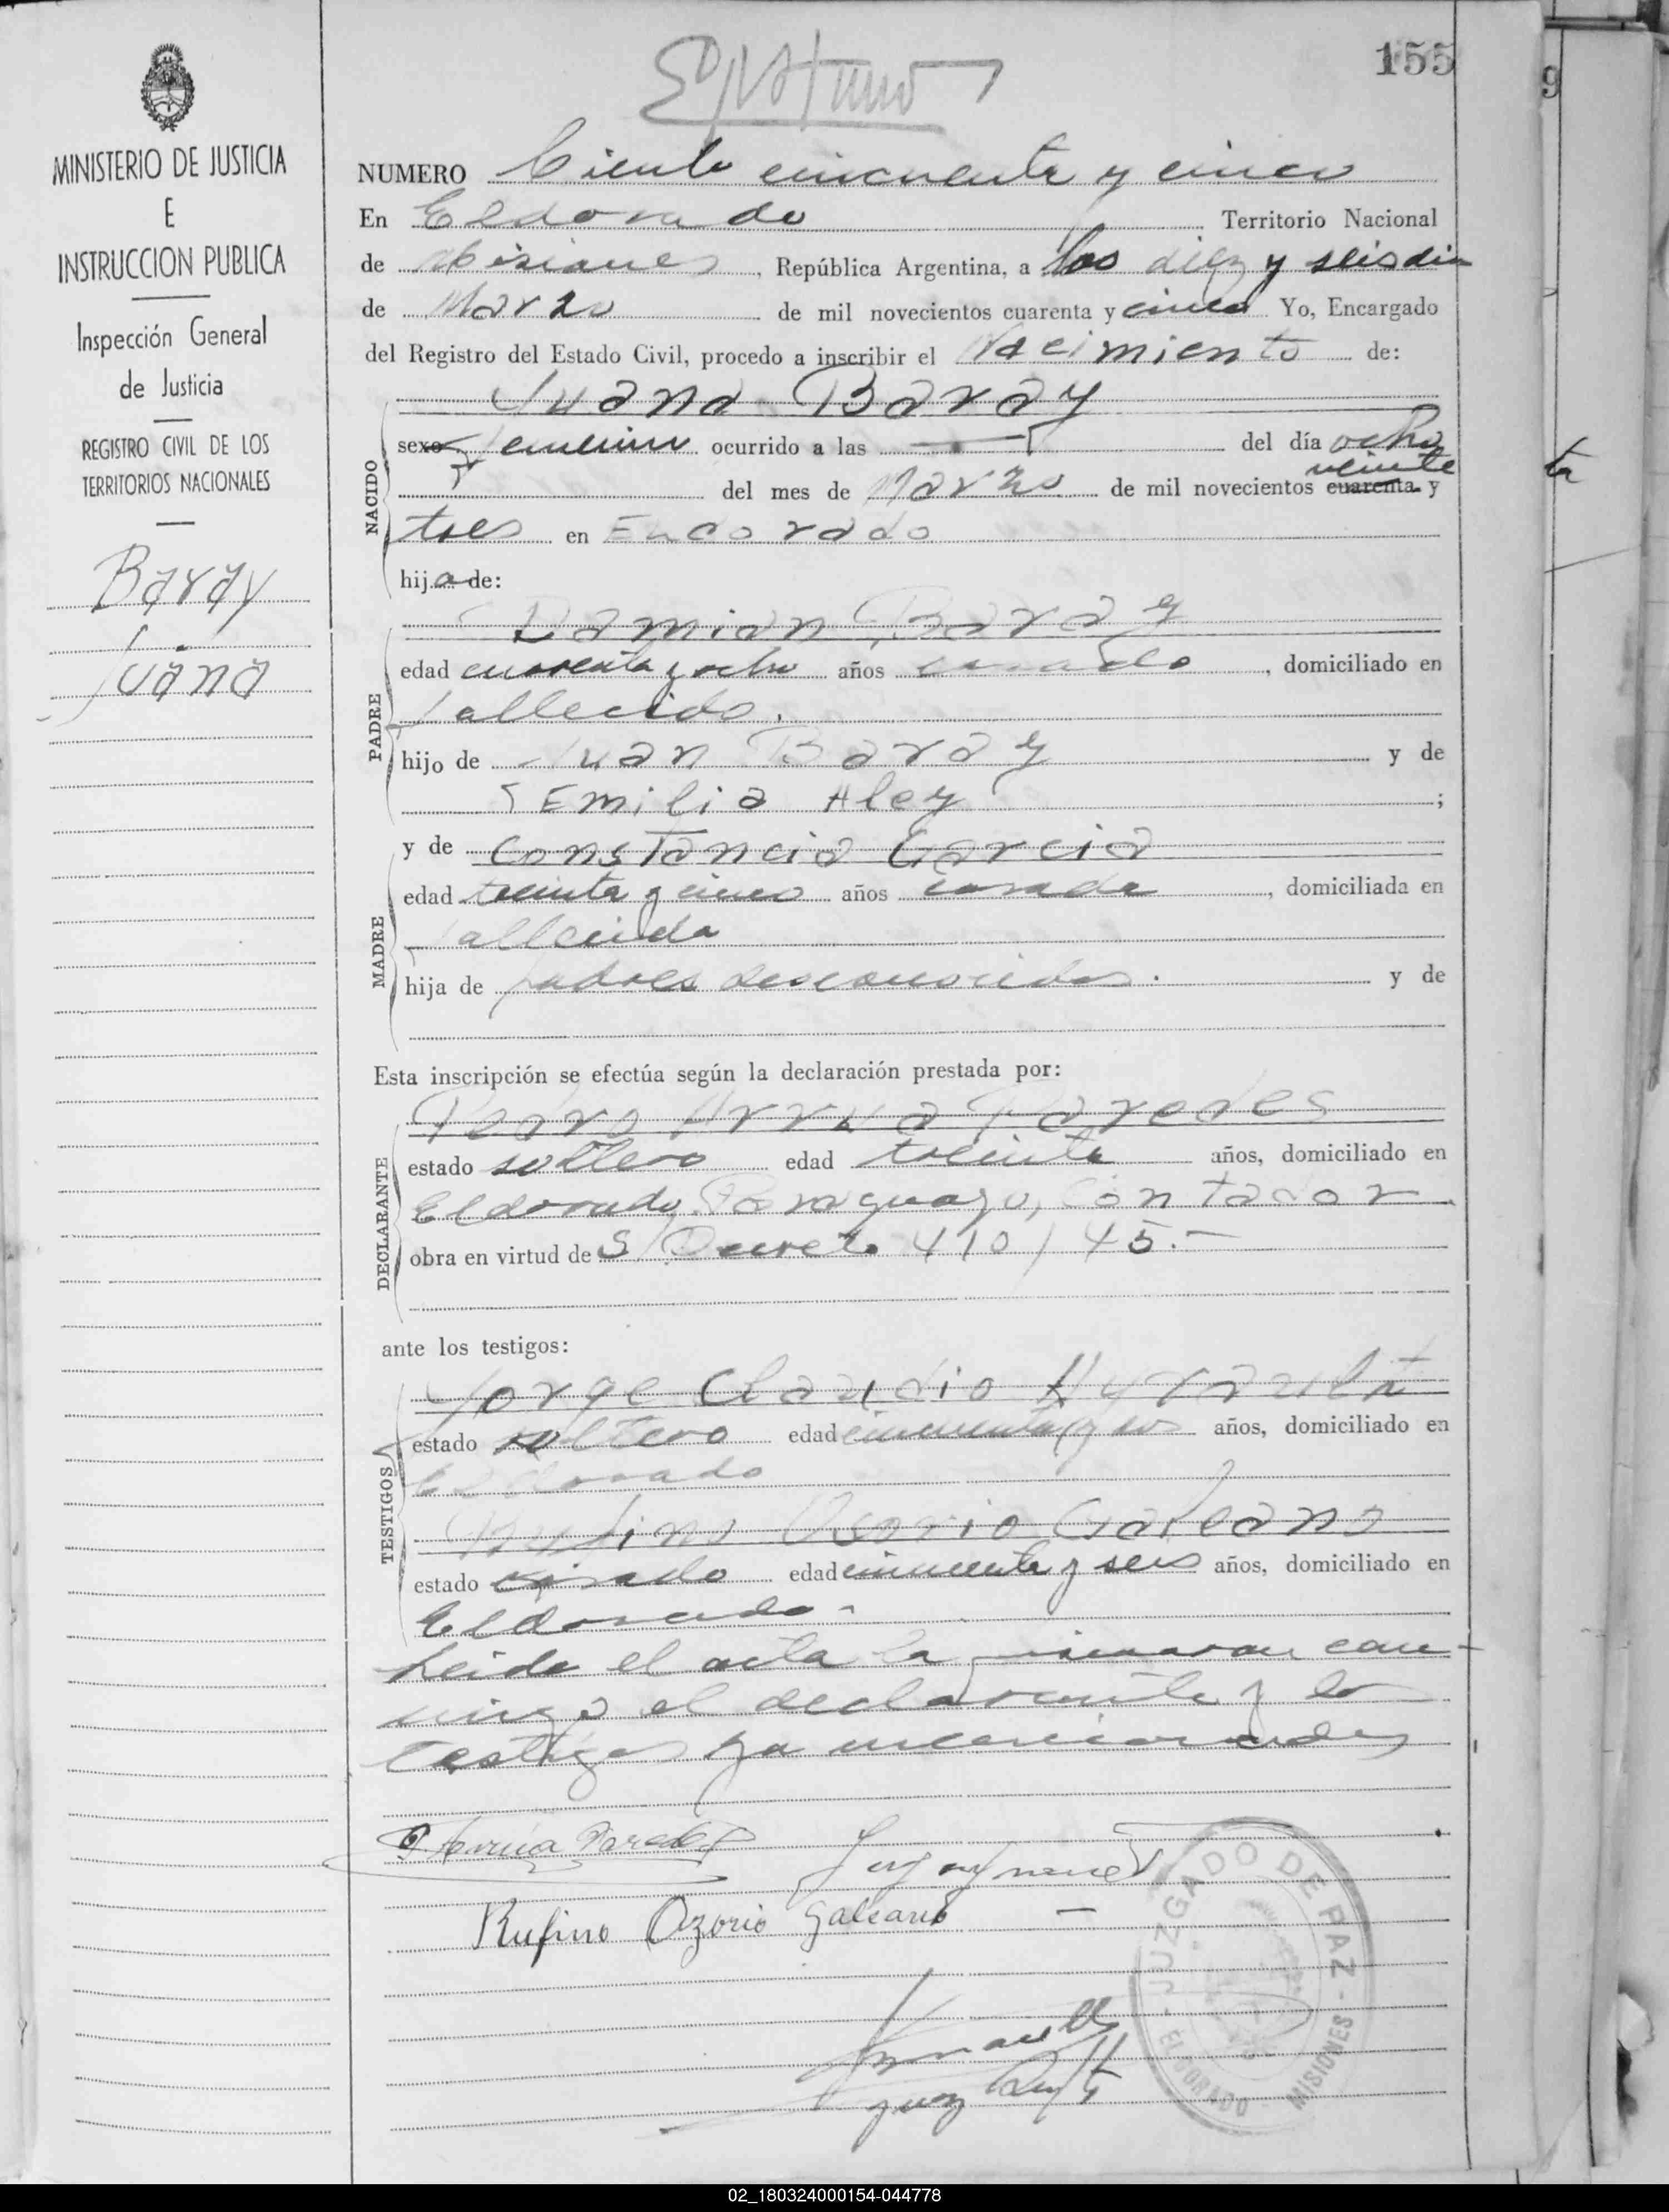 155
MINISTERIO DE JUSTICIA
E
INSTRUCCION PUBLICA
Inspección General
de Justicia
REGISTRO CIVIL DE LOS
TERRITORIOS NACIONALES
Baray
Juana
NUMERO Ciento cincuenta y cinco
En Eldorado Territorio Nacional
de Misiones, República Argentina, a los diez y seis dia
de Marzo de mil novecientos cuarenta y cinco Yo, Encargado
del Registro del Estado Civil, procedo a inscribir el Nacimiento de:
Juana Baray
NACIDO
sexo femenino ocurrido a las — del día ocho
veinte
del mes de Marzo de mil novecientos cuarenta y
tres en Eldorado
hija de:
Damian Baray
PADRE
edad cuarenta y ocho años casado, domiciliado en
fallecido.
hijo de Juan Baray y de
Emilia Aley;
y de Constancia Garcia
MADRE
edad treinta y cinco años casada, domiciliada en
fallecida
hija de padres desconocidos. y de
Esta inscripción se efectúa según la declaración prestada por:
Pedro Arrua Paredes
DECLARANTE
estado soltero edad treinta años, domiciliado en
Eldorado, Paraguayo, Contador
obra en virtud de S/ Decreto 410/45.-
ante los testigos:
Jorge Claudio
TESTIGOS
estado soltero edad cincuenta y años, domiciliado en
Eldorado
Rufino Osorio Galeano
estado casado edad cincuenta y seis años, domiciliado en
Eldorado-
Leida el acta la firmaron con-
migo el declarante y los
testigos ya mencionados
P Arrua Paredes
Rufino Ozorio Galeano —
JUZGADO DE PAZ - MISIONES - ELDORADO -
02_180324000154-044778